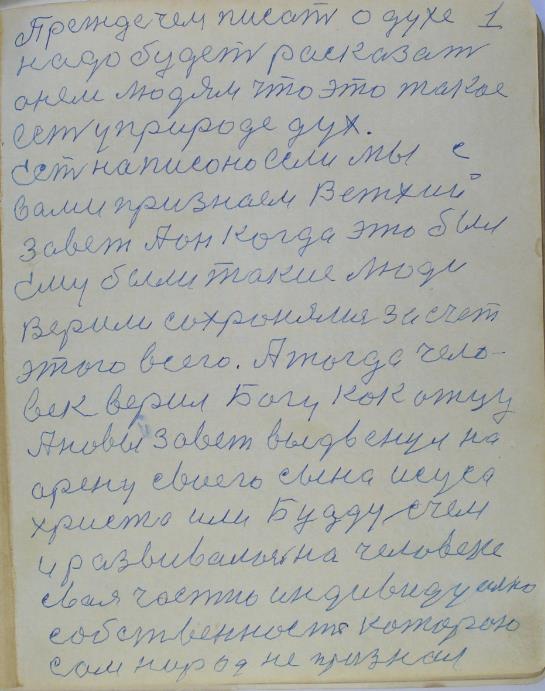 Прежде чем писат о духе 1
надо будет расказат
онем людям что это такое
ест уприроде дух.
Ест написоно если мы с
вами признаем Ветхий
завет Аон когда это был
Ему были такие люди
верили сохронялися засчет
этого всего. Атогда чело-
век верил Богу как отцу
Ановы завет выдвенул на
орену своего сына исуса
христа или Будду счем
и развивалося на человеке
своя частно индивидуално
собственност которою
сам народ не признал